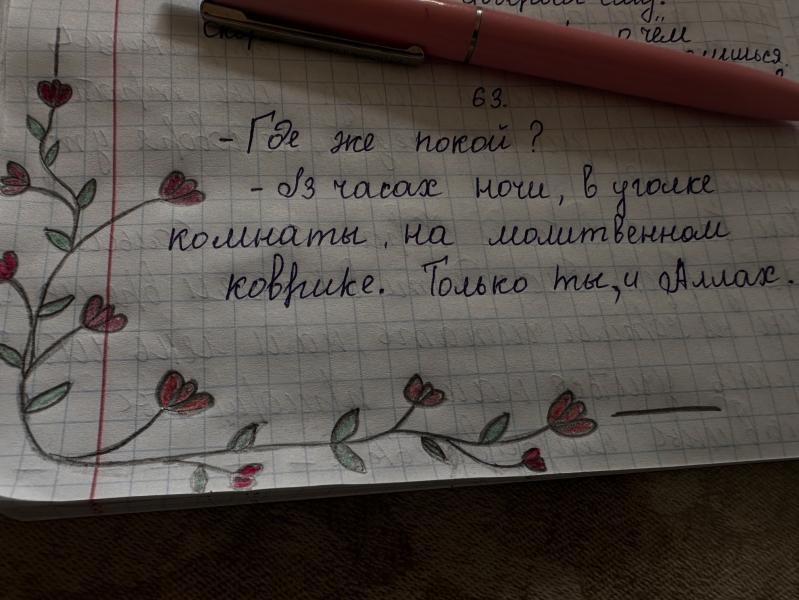 о чём
63.
- Где же покой?
- В 3 часах ночи, в уголке
комнаты, на молитвенном
коврике. Только ты, и Аллах.